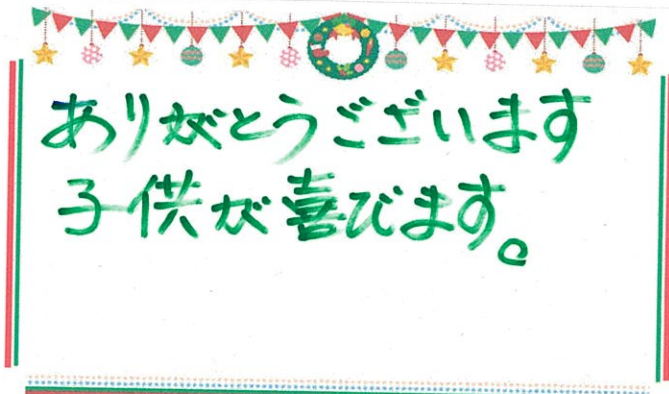 ありがとうございます
子供が喜びます。